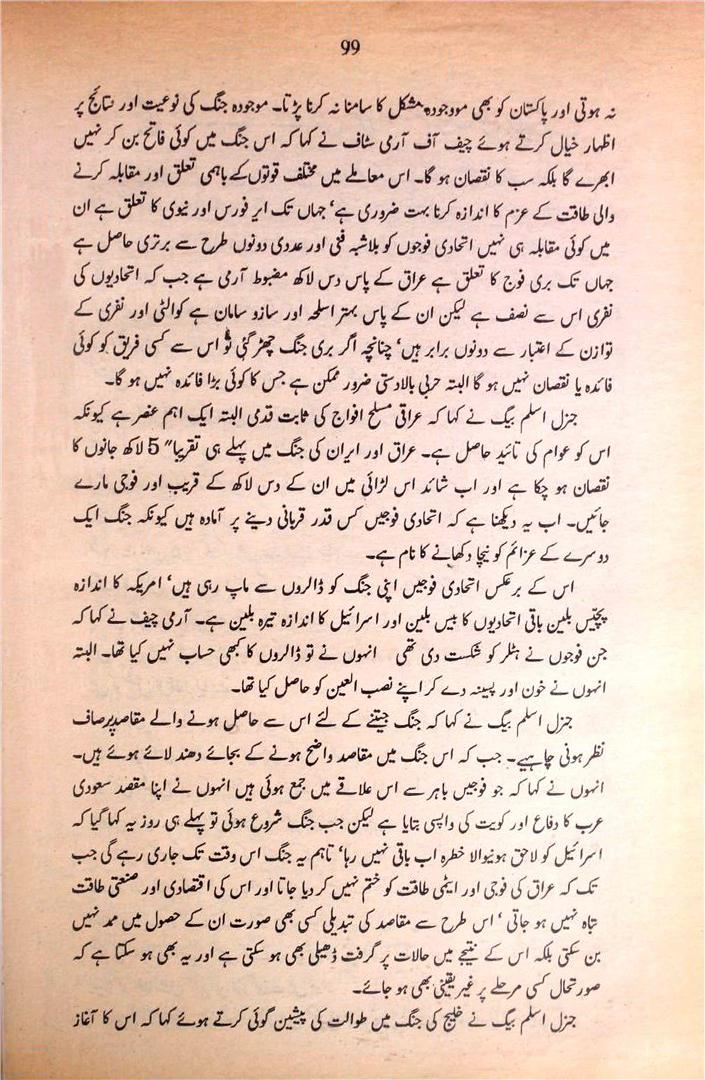 99
نہ ہوتی اور پاکستان کو بھی موجودہ مشکل کا سامنا نہ کرنا پڑتا۔ موجودہ جنگ کی نوعیت اور نتائج پر
اظہار خیال کرتے ہوئے چیف آف آرمی سٹاف نے کہا کہ اس جنگ میں کوئی فاتح بن کر نہیں
ابھرے گا بلکہ سب کا نقصان ہو گا۔ اس معاملے میں مختلف قوتوں کے باہمی تعلق اور مقابلہ کرنے
والی طاقت کے عزم کا اندازہ کرنا بہت ضروری ہے‘ جہاں تک ایر فورس اور نیوی کا تعلق ہے ان
میں کوئی مقابلہ ہی نہیں اتحادی فوجوں کو بلاشبہ فنی اور عددی دونوں طرح سے برتری حاصل ہے
جہاں تک بری فوج کا تعلق ہے عراق کے پاس دس لاکھ مضبوط آرمی ہے جب کہ اتحادیوں کی
نفری اس سے نصف ہے لیکن ان کے پاس بہتر اسلحہ اور سازو سامان ہے کوالٹی اور نفری کے
توازن کے اعتبار سے دونوں برابر ہیں‘ چنانچہ اگر بری جنگ چھڑ گئی تو اس سے کسی فریق کو کوئی
فائدہ یا نقصان نہیں ہو گا البتہ حربی بالادستی ضرور ممکن ہے جس کا کوئی بڑا فائدہ نہیں ہو گا۔
جنرل اسلم بیگ نے کہا کہ عراقی مسلح افواج کی ثابت قدمی البتہ ایک اہم عنصر ہے کیونکہ
اس کو عوام کی تائید حاصل ہے۔ عراق اور ایران کی جنگ میں پہلے ہی تقریبا" 5 لاکھ جانوں کا
نقصان ہو چکا ہے اور اب شائد اس لڑائی میں ان کے دس لاکھ کے قریب اور فوجی مارے
جائیں۔ اب یہ دیکھنا ہے کہ اتحادی فوجیں کس قدر قربانی دینے پر آمادہ ہیں کیونکہ جنگ ایک
دوسرے کے عزائم کو نیچا دکھانے کا نام ہے۔
اس کے برعکس اتحادی فوجیں اپنی جنگ کو ڈالروں سے ماپ رہی ہیں‘ امریکہ کا اندازہ
پچیس بلین باقی اتحادیوں کا بیس بلین اور اسرائیل کا اندازہ تیرہ بلین ہے۔ آرمی چیف نے کہا کہ
جن فوجوں نے ہٹلر کو شکست دی تھی انہوں نے تو ڈالروں کا کبھی حساب نہیں کیا تھا۔ البتہ
انہوں نے خون اور پسینہ دے کر اپنے نصب العین کو حاصل کیا تھا۔
جنرل اسلم بیگ نے کہا کہ جنگ جیتنے کے لئے اس سے حاصل ہونے والے مقاصد پر صاف
نظر ہونی چاہیے۔ جب کہ اس جنگ میں مقاصد واضح ہونے کے بجائے دھند لائے ہوئے ہیں۔
انہوں نے کہا کہ جو فوجیں باہر سے اس علاقے میں جمع ہوئی ہیں انہوں نے اپنا مقصد سعودی
عرب کا دفاع اور کویت کی واپسی بتایا ہے لیکن جب جنگ شروع ہوئی تو پہلے ہی روز یہ کہا گیا کہ
اسرائیل کو لاحق ہونیوالا خطرہ اب باقی نہیں رہا‘ تاہم یہ جنگ اس وقت تک جاری رہے گی جب
تک کہ عراق کی فوجی اور ایٹمی طاقت کو ختم نہیں کر دیا جاتا اور اس کی اقتصادی اور صنعتی طاقت
تباہ نہیں ہو جاتی ‘ اس طرح سے مقاصد کی تبدیلی کسی بھی صورت ان کے حصول میں ممد نہیں
بن سکتی بلکہ اس کے نتیجے میں حالات پر گرفت ڈھیلی بھی ہو سکتی ہے اور یہ بھی ہو سکتا ہے کہ
صورتحال کسی مرحلے پر غیر یقینی بھی ہو جائے۔
جنرل اسلم بیگ نے خلیج کی جنگ میں طوالت کی پیشین گوئی کرتے ہوئے کہا کہ اس کا آغاز